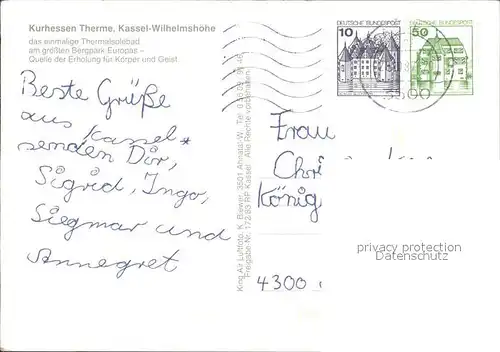 Kurhessen Therme, Kassel-Wilhelmshöhe
das einmalige Thermalsolebad
am größten Bergpark Europas –
Quelle der Erholung für Körper und Geist.
Beste Grüße
aus Kassel
senden Dir,
Sigrid, Ingo,
Siegmar und
Annegret
King Air Luftfoto, K. Biewer, 3501 Ahnatal-W., Tel.
Freigabe-Nr. RP Kassel Alle Rechte vorbehalten
DEUTSCHE BUNDESPOST
10
DEUTSCHE BUNDESPOST
50
3500
Frau
Chri
König
4300
privacy protection
Datenschutz